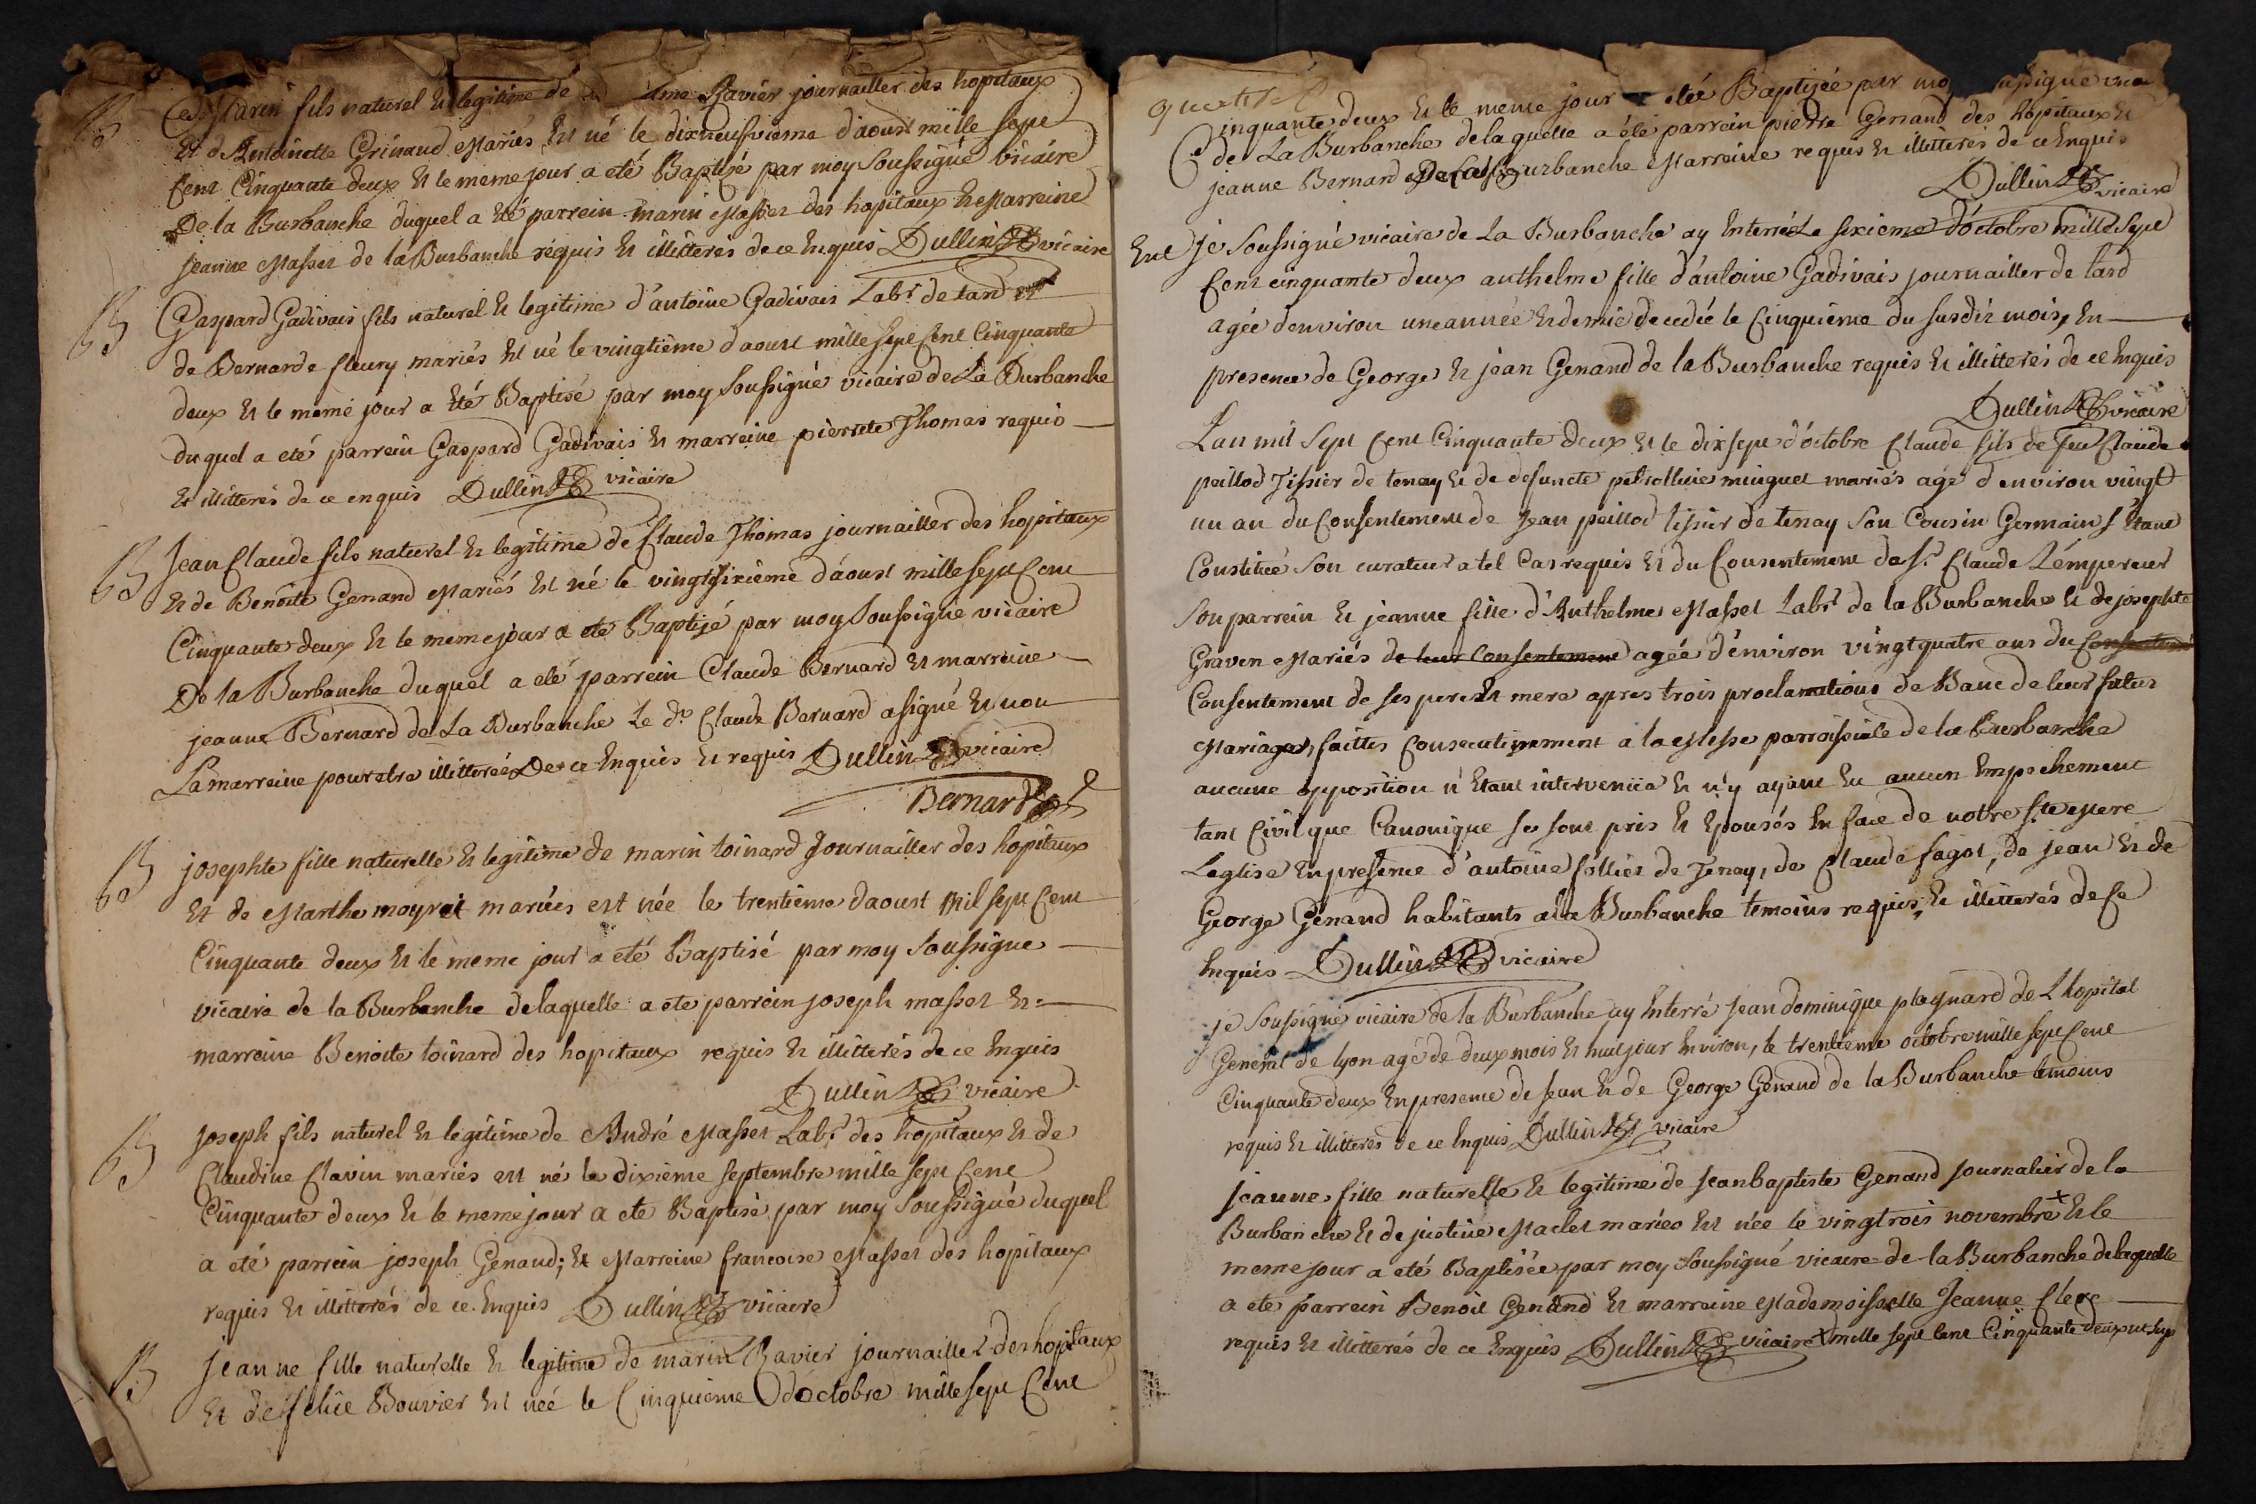 B
Marin fils naturel et legitime de Ravier journaillier des hopitaux
et d'Antoinette Grinand Mariés est né le dixneufvieme d'aoust mille sept
cent Cinquante deux et le meme jour a eté Baptisé par moy Soussigné vicaire
De la Burbanche duquel a eté parrein marin Masset des hopitaux et Marreine
jeanne Masset de la Burbanche requis et illitterés de ce Enquis Dullin vicaire
B
Gaspard Gadivais fils naturel et legitime d'antoine Gadivais Labr de tard et
de Bernarde fleury mariés est né le vingtième d'aoust mille sept Cent Cinquante
deux et le meme jour a eté Baptisé par moy Soussigné vicaire de La Burbanche
duquel a eté parrein Gaspard Gadivais et marreine pierrete Thomas requis
et illitterés de ce enquis Dullin vicaire
B
Jean Claude fils naturel et legitime de Claude Thomas journailler des hopitaux
et de Benoite Genand Mariés est né le vingtsixième d'aoust mille sept Cent
Cinquante deux et le meme jour a eté Baptisé par moy Soussigné vicaire
De la Burbanche duquel a eté parrein Claude Bernard et marreine
jeanne Bernard de La Burbanche Le dt Claude Bernard a signé et non
La marreine pour etre illitterée De ce Enquis et requis Dullin vicaire
Bernard
B
josephte fille naturelle et legitime de marin toinard Journailler des hopitaux
et de Marthe moyret mariés est née le trentième daoust Mil sept Cent
Cinquante deux et le meme jour a eté Baptisé par moy Soussigne
vicaire de la Burbanche delaquelle a ete parrein joseph masset et
marreine Benoite toinard des hopitaux requis et illitterés de ce Enquis
Dullin vicaire
B
joseph fils naturel et legitime de André Masset Labr des hopitaux et de
Claudine Clavin mariés est né le dixième septembre mille sept Cent
Cinquante deux et le meme jour a eté Baptisé par moy Soussigné duquel
a eté parrein joseph Genaud; et Marreine francoise Masset des hopitaux
requis et illitterés de ce Enquis Dullin vicaire
B
jeanne fille naturelle et legitime de marin Ravier journailler des hopitaux
et de felice Bouvier est née le Cinquieme d'octobre mille sept Cent
Cinquante deux et le meme jour eté Baptisée par vicaire
de La Burbanche de la quelle a été parrein pierre Genand des hopitaux et
jeanne Bernard De la Burbanche Marreine requis et illitterés de ce Enquis
Dullin vicaire
Ent
je Soussigné vicaire de La Burbanche ay Enterré Le sixieme d'octobre mille sept
Cent cinquante deux anthelme fille d'antoine Gadivais journailler de tard
agée denviron une année et demie decedée le Cinquième du susdit mois, En
presence de George et jean Genand de la Burbanche requis et illitterés de ce Enquis
Dullin vicaire
L'an mil Sept Cent Cinquante deux et le dixsept d'octobre Claude fils de feu Claude
peillod Tissier de tenay et de defuncte minguet mariés agé d'environ vingt
un an du Consentement de Jean peillod tissier de tenay Son Cousin Germain S'Etant
Constitué Son curateur a tel Cas requis et du Consentement de Sr Claude L'émpereur
Son parrein et jeanne fille d'Anthelme Masset Labr de la Burbanche et de josephte
Graven Mariés de leur Consentement agée d'environ vingtquatre ans du Consentement
Consentement de ses pere et mere apres trois proclamations de Banc de leur futur
Mariage, faittes Consecutivement a la Messe parroissiale de la Burbanche
aucune opposition n'Etant intervenüe et n'y ayant Eu aucun Empechement
tant Civil que Canonique se sont pris et Epousés En face de notre Ste Mere
L'eglise En presence d'antoine follier de Tenay, de Claude fagot, de jean et de
George Genand habitants a la Burbanche temoins requis, et illitterés de Ce
Enquis Dullin vicaire
je Soussigné vicaire de la Burbanche ay Enterré Jean dominique plagnard de L'hopital
General de lyon agé de deux mois et huit jour Environ, le trentieme octobre mille sept Cent
Cinquante deux En presence de Jean et de George Genand de la Burbanche temoins
requis et illitterés de ce Enquis Dullin vicaire
jeanne fille naturelle et legitime de Jean baptiste Genand Journalier de la
Burbanche et de justine Maclet mariés est née le vingtrois novembre + et le
meme jour a eté Baptisée par moy Soussigné vicaire de la Burbanche delaquelle
a ete parrein Benoit Genand et marreine Mademoiselle Jeanne Clerc
requis et illitterés de ce Enquis Dullin vicaire + mille sept cent Cinquante deux